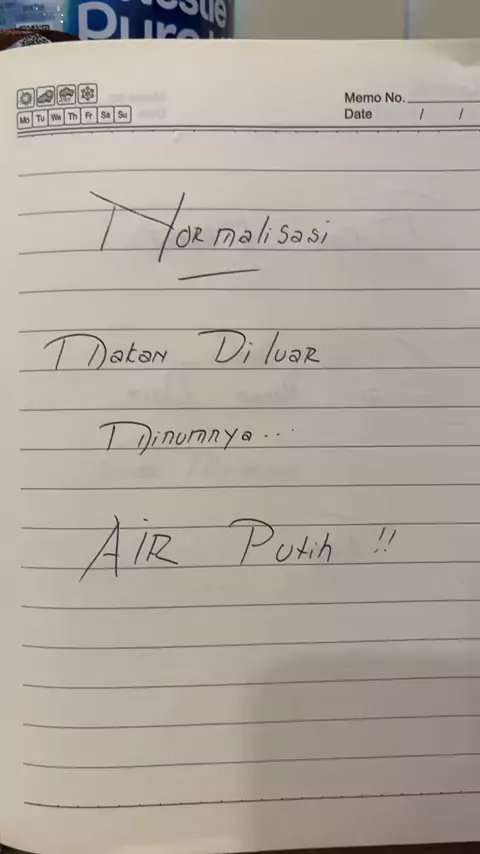 Nestlé
Pure
Memo No.
Mo Tu We Th Fr Sa Su
Date / /
Normalisasi
Makan Diluar
Minumnya...
AIR Putih !!